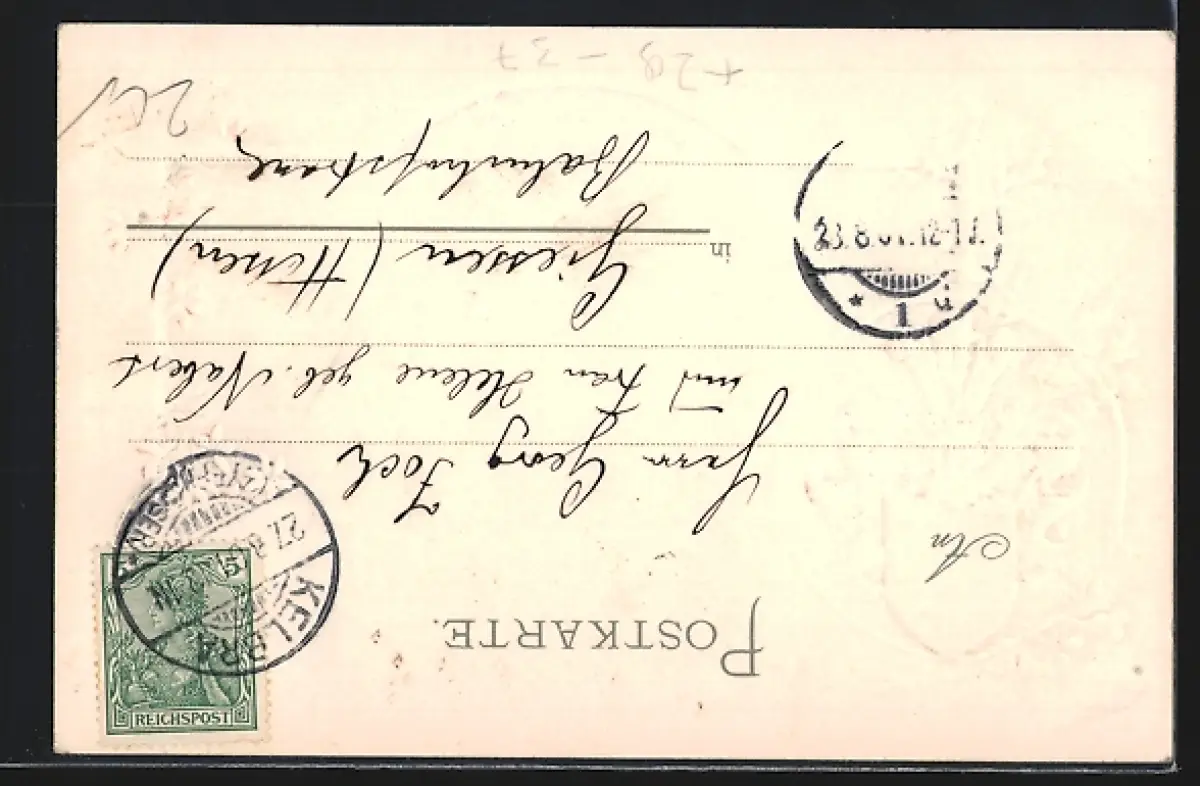 POSTKARTE.
An
Herrn Georg Joch
und Frau Helene geb. Nabert
in Giessen (Hessen)
Bahnhofstrasse
KELBRA
27.8.
REICHSPOST
5
23.8.01.12-1N.
* 1
+ 29 - 37